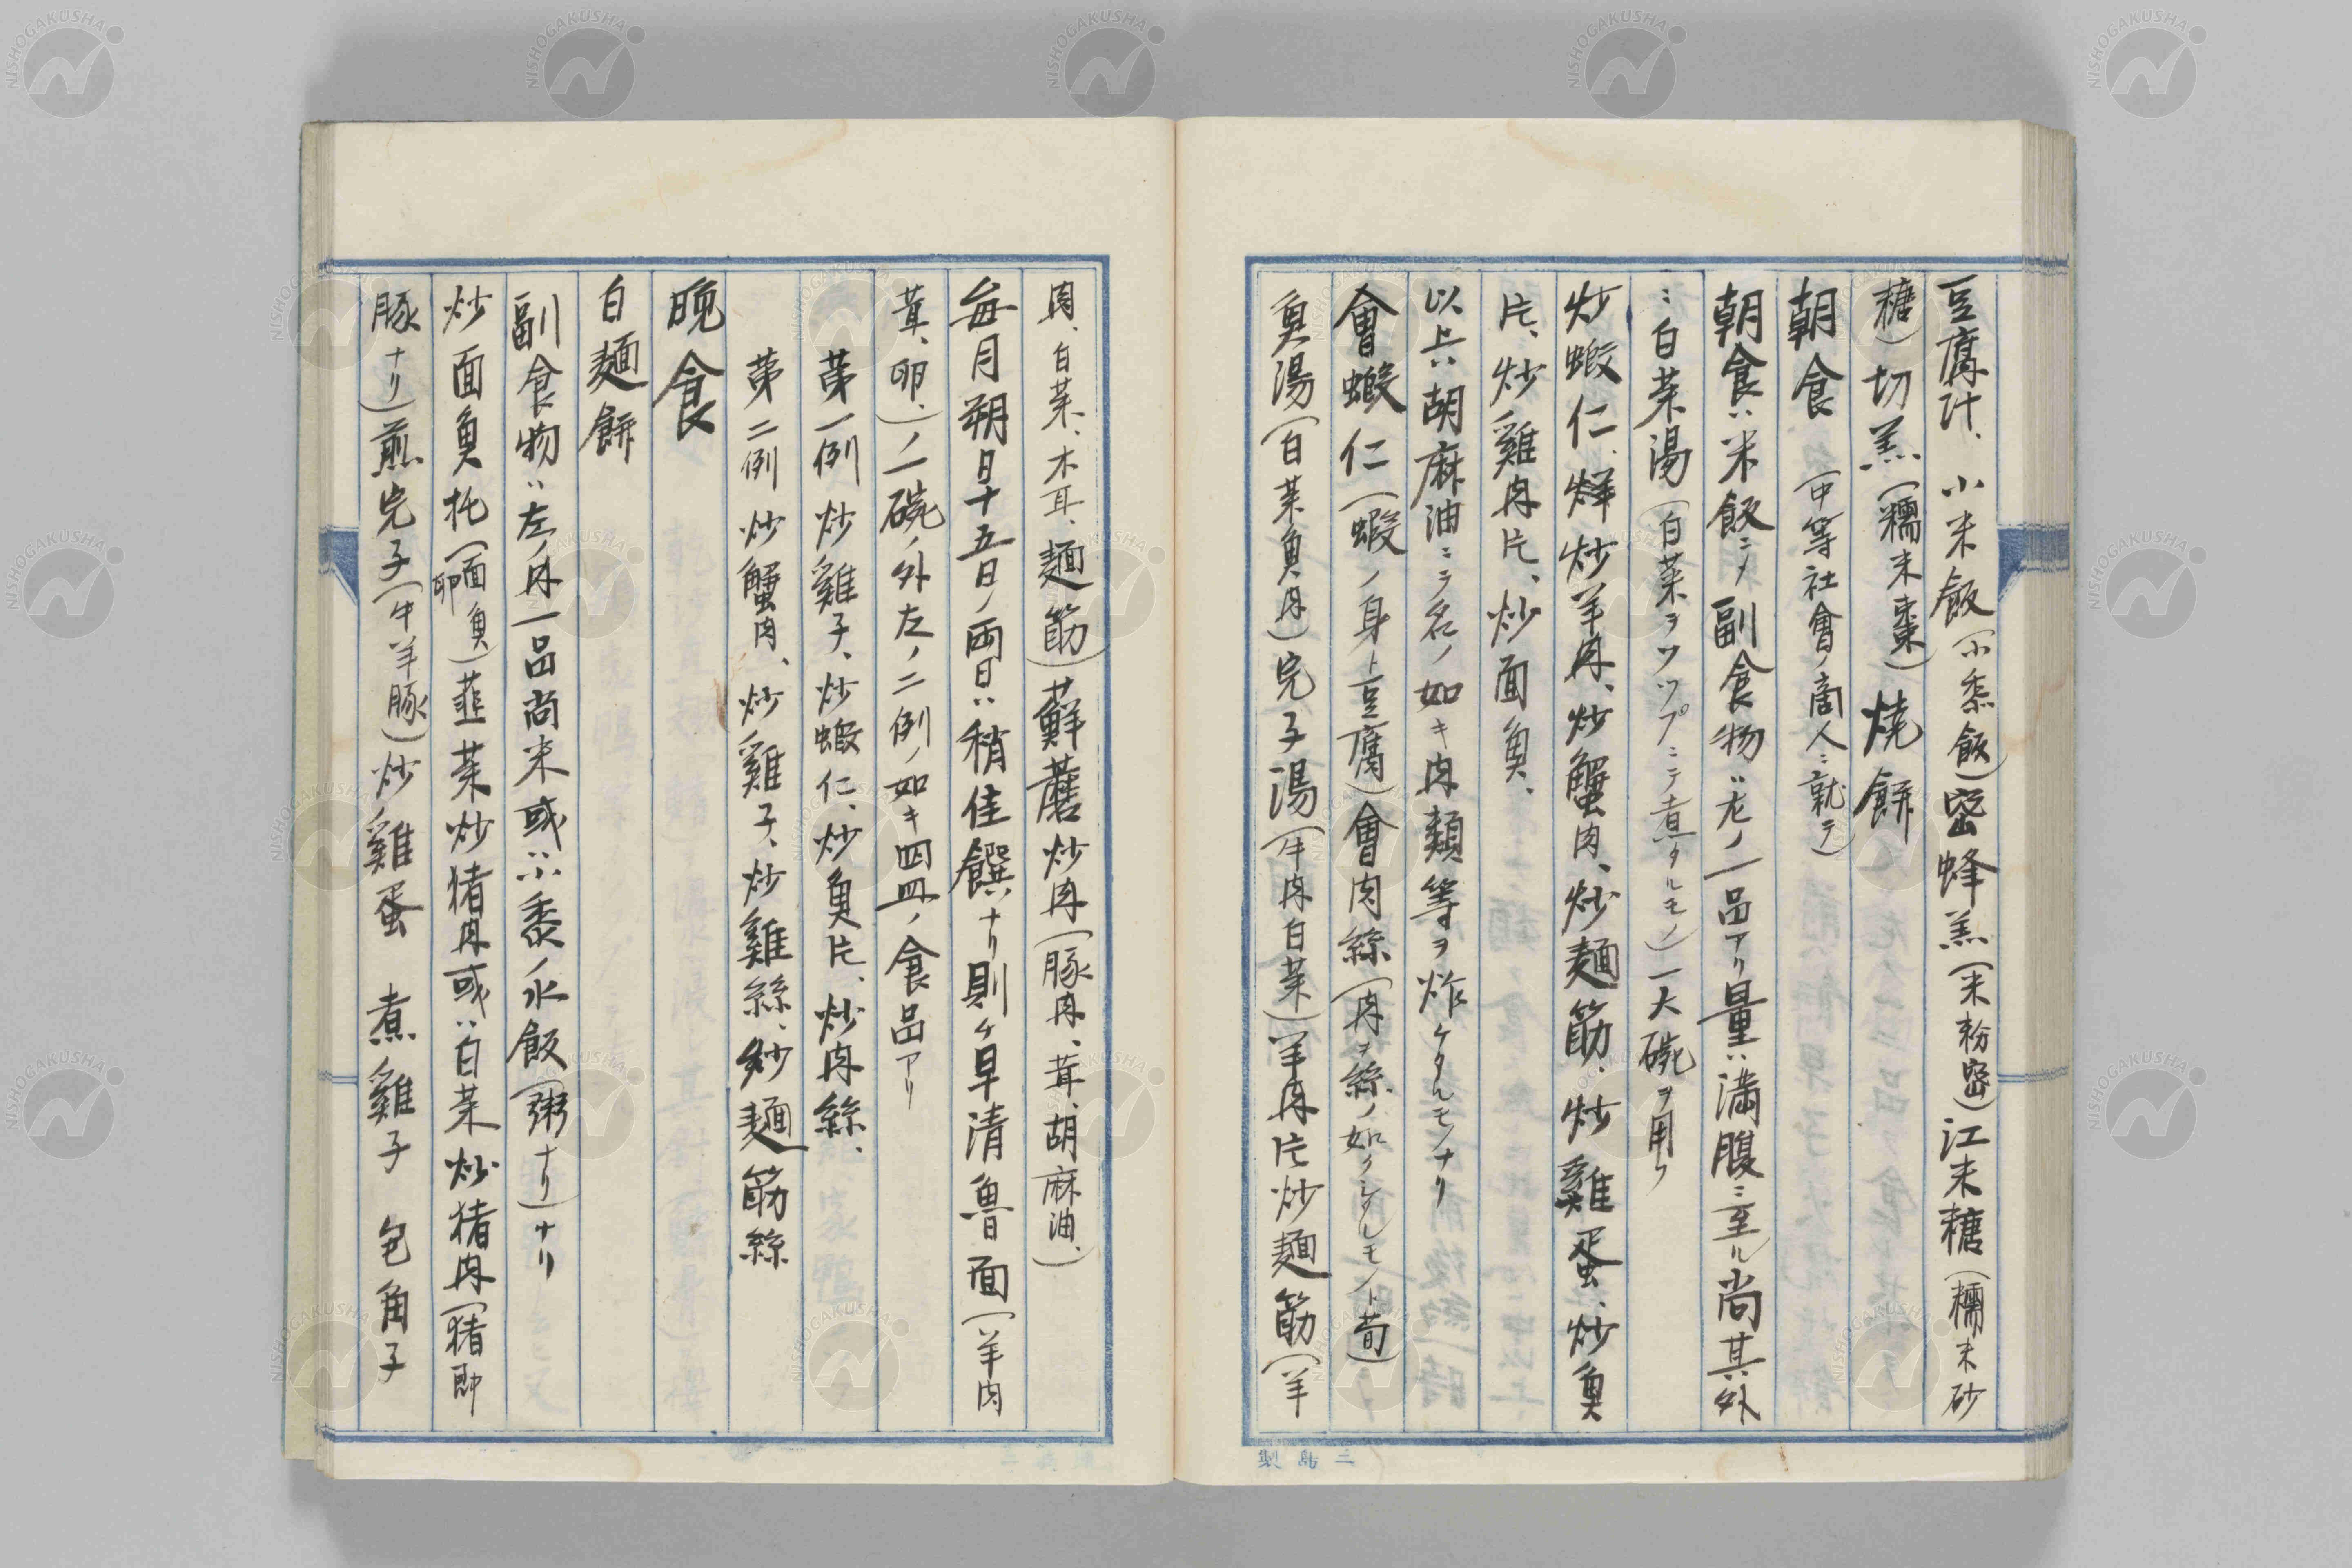 豆腐汁、小米飯(小黍飯)密蜂羔(米粉密)江米糖(糯米砂
糖)切羔(糯米棗)燒餅
朝食(中等社會ノ商人ニ就テ)
朝食ハ米飯ニメ副食物ハ左ノ一品アリ量ハ満腹ニ至ル尚其外
ニ白菜湯(白菜ヲソップニテ煮タルモノ)一大碗ヲ用ウ
炒蝦仁、烊炒羊肉、炒蟹肉、炒麺筋、炒雞蛋、炒魚
片、炒雞肉片、炒面魚、
以上ハ胡麻油ニテ名ノ如キ肉類等ヲ炸ケタルモノナリ
會蝦仁(蝦ノ身ト豆腐)會肉絲(肉ヲ絲ノ如クシタルモノト荀)
魚湯(白菜魚肉)完子湯(牛肉白菜)羊肉片炒麺筋(羊
肉、白菜、木耳、麺筋)蘇蘑炒肉(豚肉、茸、胡麻油、)
毎月朔日十五日ノ両日ハ稍佳饌ナリ則ケ早清魯面(羊肉
茸、卵、)ノ一碗ノ外左ノ二例ノ如キ四皿ノ食品アリ
第一例 炒雞子、炒蝦仁、炒魚片、炒肉絲、
第二例 炒蟹肉、炒雞子、炒雞絲、炒麺筋絲
晩食
白麺餅
副食物ハ左ノ内一品尚米或ハ小黍ノ水飯(粥ナリ)ナリ
炒面魚托(面魚卵)韮菜炒猪肉或ハ白菜炒猪肉(猪即
豚ナリ)煎完子(牛羊豚)炒雞蛋 煮雞子 包角子
三島製
NISHOGAKUSHA